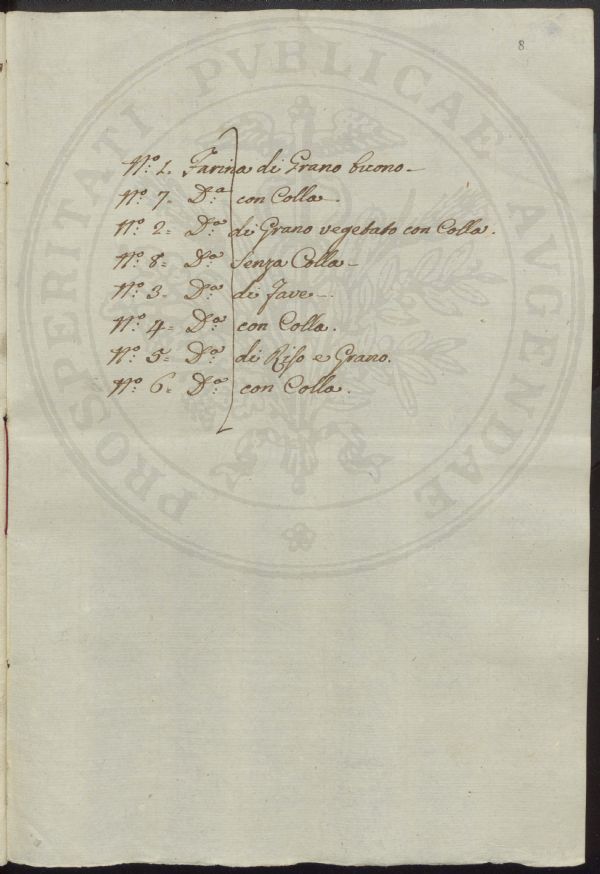 8
N.º 1. Farina di Grano buono-
N.º 7- D.ª con Colla-
N.º 2- D.ª di Grano vegetato con Colla.
N.º 8- D.ª Senza Colla-
N.º 3- D.ª di Fave-
N.º 4- D.ª con Colla.
N.º 5- D.ª di Riso e Grano.
N.º 6- D.ª con Colla.
PROSPERITATI PVBLICAE AVGENDAE